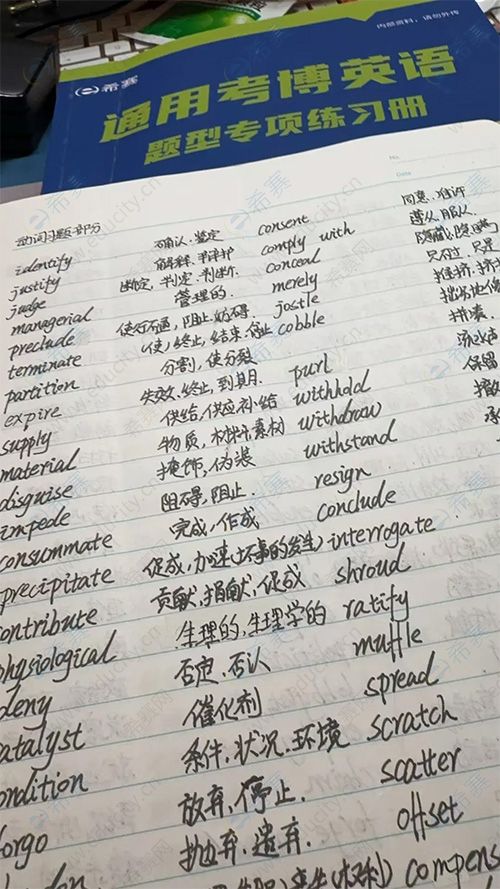 希赛
内部资料，请勿外传
通用考博英语
题型专项练习册
No.
Date
动词习题部分
identify 确认、鉴定 consent 同意、准许
justify 解释、辩护 comply with 遵从、服从
judge 断定，判定、判断 conceal 隐藏、隐瞒
managerial 管理的 merely 只不过，只是
preclude 使行不通，阻止、妨碍 jostle
terminate 使，终止，结束，停止 cobble
partition 分割，使分裂 拼凑
expire 失效、终止，到期 purl
supply 供给，供应、补给 withhold 保留
material 物质，材料、素材 withdraw
disguise 掩饰，伪装 withstand
impede 阻碍，阻止 resign
consummate 完成，作成 conclude
precipitate 促成，加速(坏事的发生) interrogate
ontribute 贡献，捐献，促成 shroud
hysiological 生理的，生理学的 ratify
deny 否定、否认 muffle
atalyst 催化剂 spread
ondition 条件、状况、环境 scratch
orgo 放弃，停止 scatter
抛弃、遗弃 offset
compens